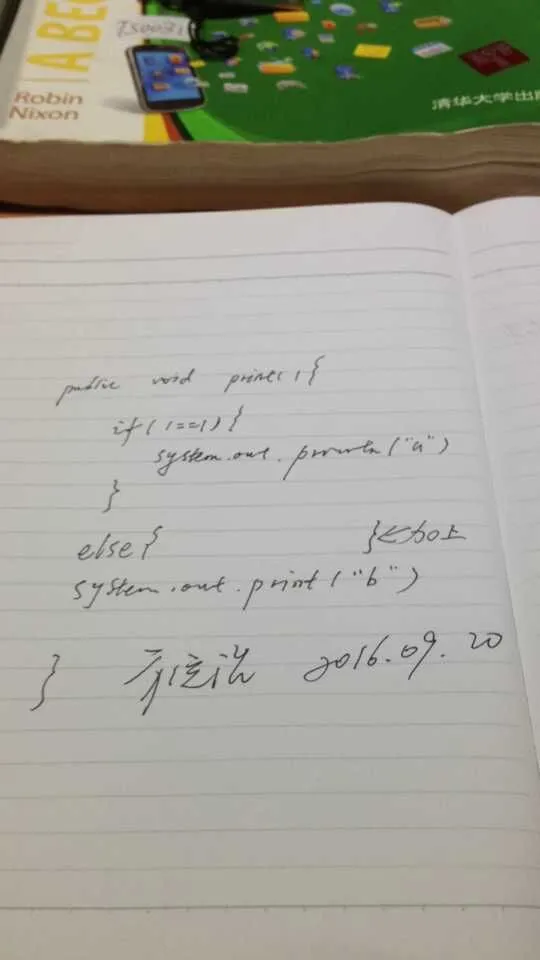 A BEG
TS0031
Robin
Nixon
清华大学出版
public void print( ){
if(1==1){
system.out.println("a")
}
else{ }<加上
system.out.print("b")
} 2016.09.20